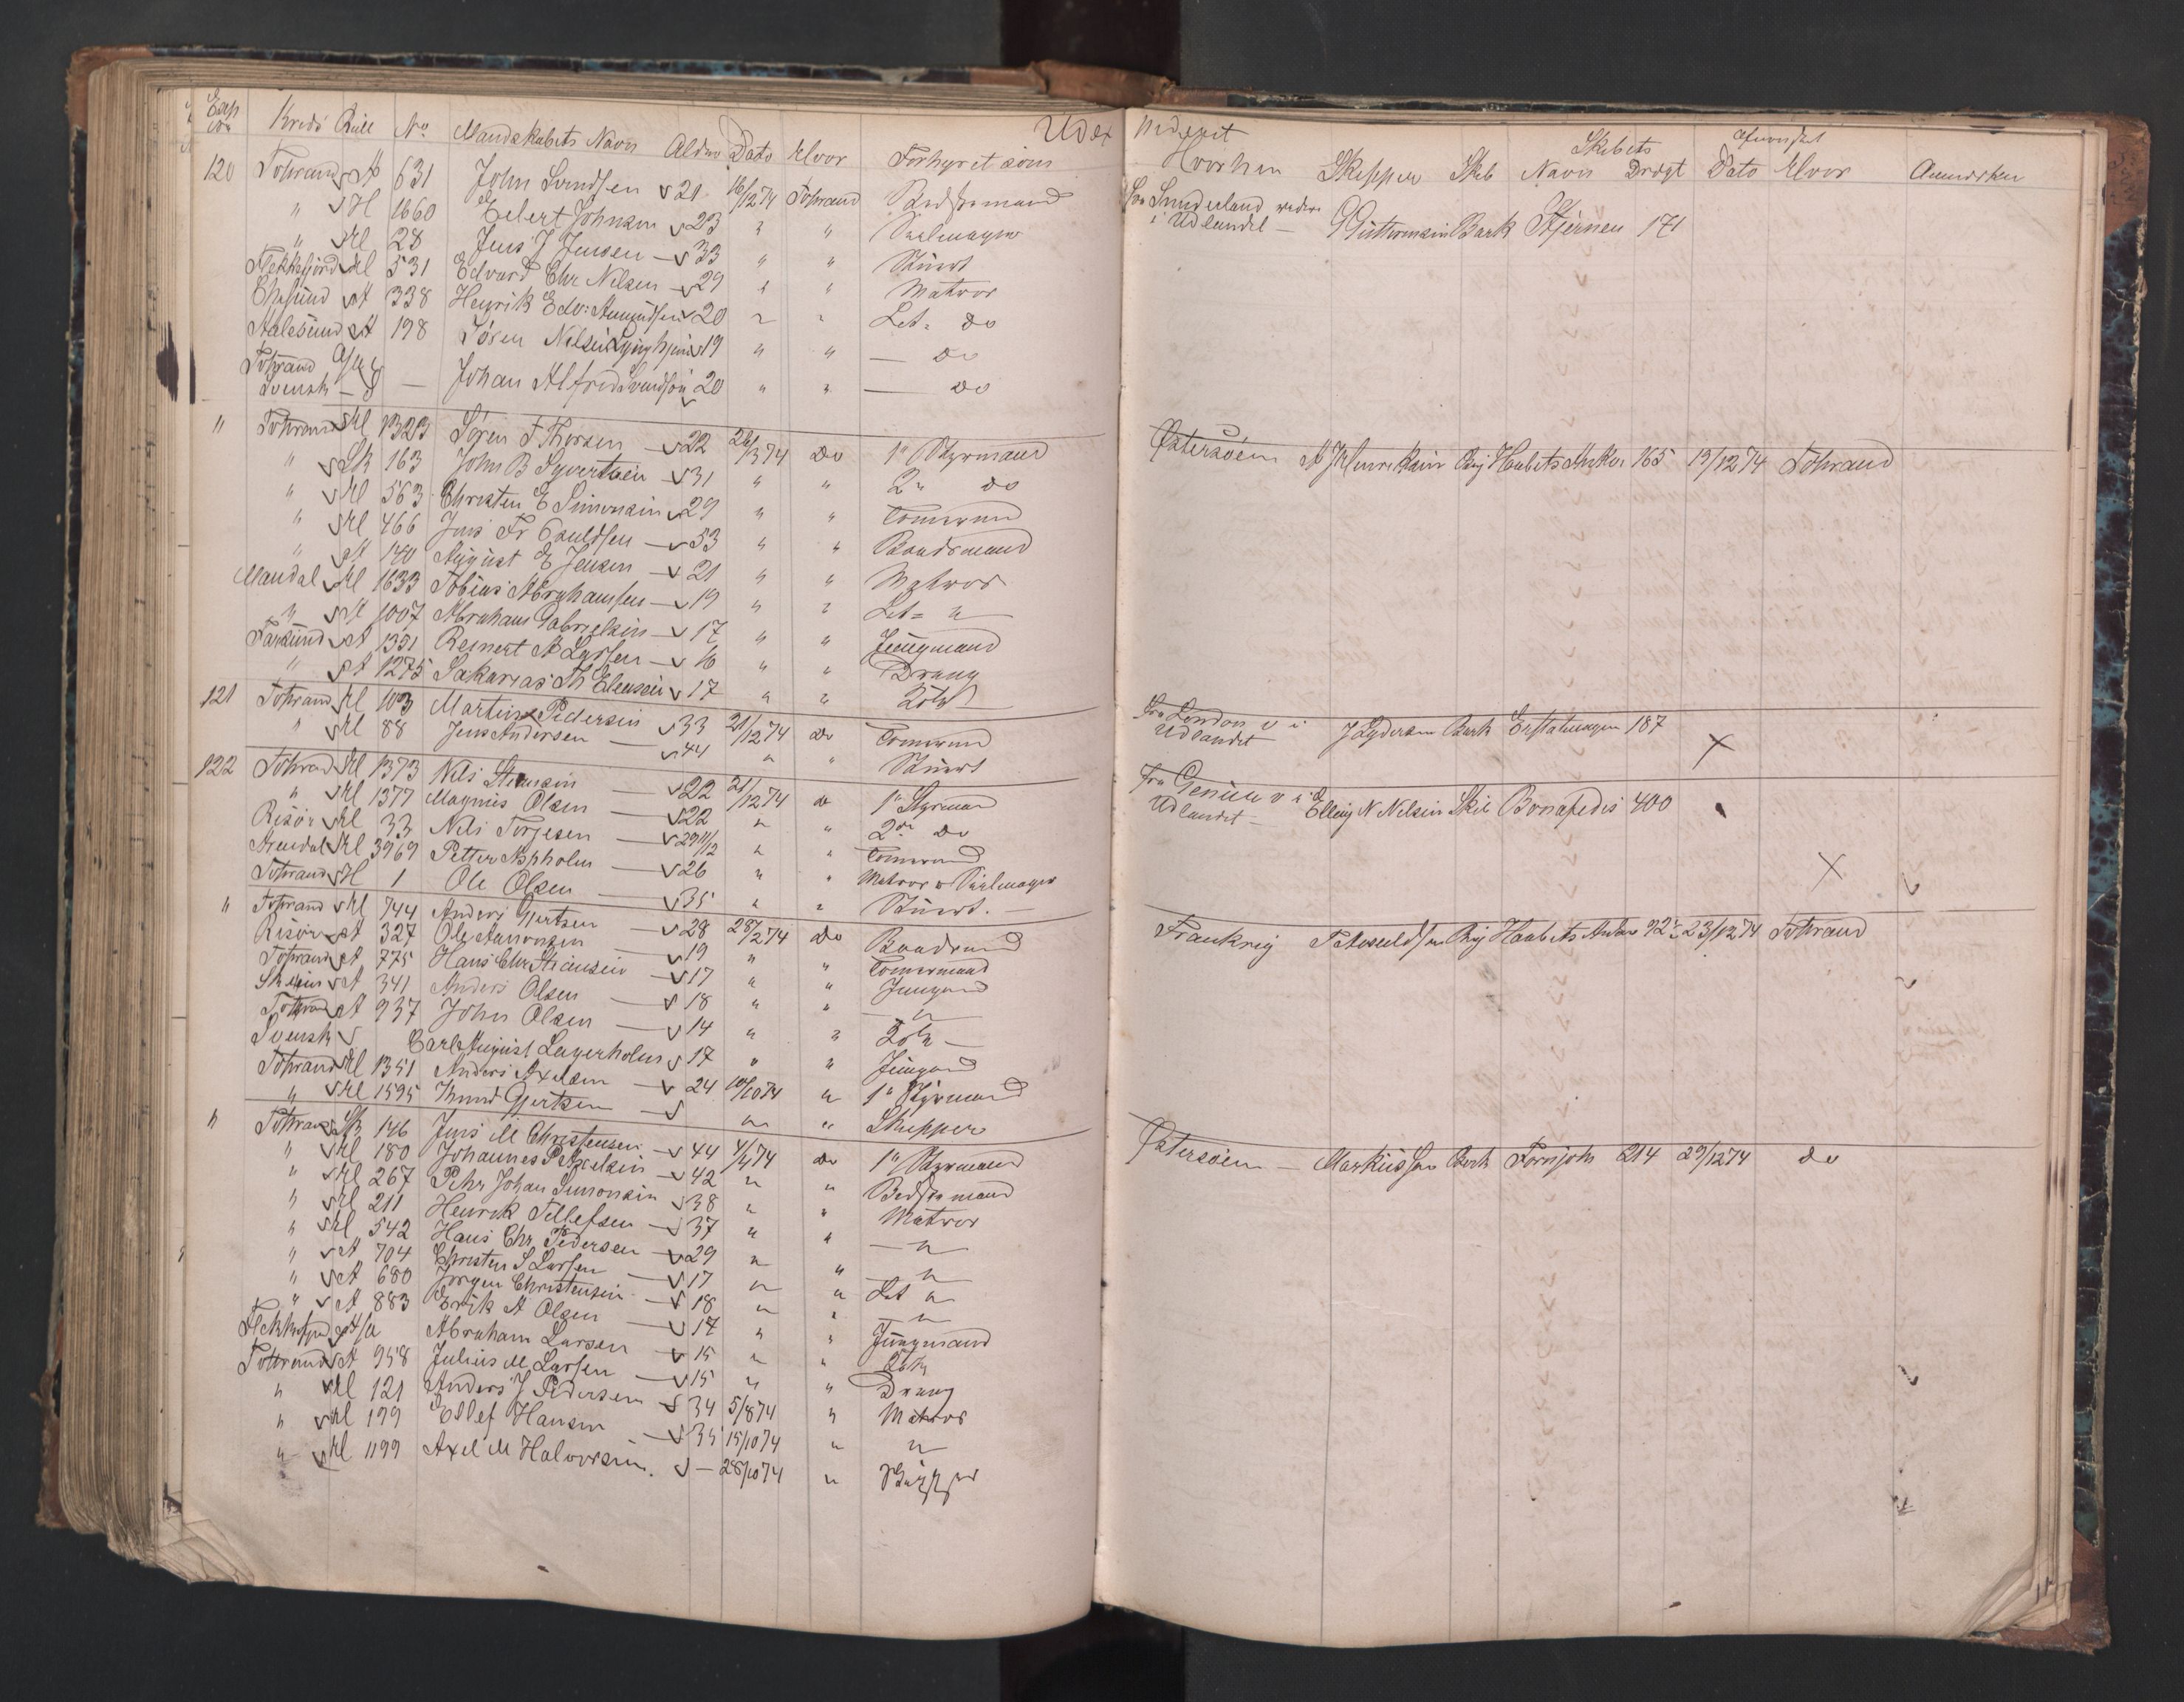 Exp No Kreds Rull No Mandskabets Navn Alder Dato Hvor Forhyret som
120 Tvtrand A 631 John Svendsen 21 16/12 74 Tvtrand Bedstemand
" H 1660 Eilert Johnsen 23 " " Seilmager
" Hl 28 Jens J Jensen 33 " " Stuert
Flekkefjord Hl 531 Edvard Chr Nilsen 29 " " Matros
Egesund A 338 Henrik Edv: Amundsen 20 " " Let= do
Aalesund A 198 Sören 19 " " — do
Tvtrand
Svensk — Johan Alfred Svendson 20 " " — do
" Tvtrand Hl 1323 Sören F Thorsen 22 26/3 74 do 1ste Styrmand
" Sk 163 John B Syvertsen 31 " " 2n do
" Hl 563 Christen E Simonsen 29 " " Tömermd
" Hl 466 Jens Fr Pauldsen 53 " " Baadsmand
" A 140 August E Jensen 21 " " Matros
Mandal Hl 1633 Tobias Abrahamsen 19 " " Let= "
" A 1007 Abraham Gabrielsen 17 " " Jungmand
Farsund A 1351 Reinert A Larsen 16 " " Dreng
" A 1275 Sakarias Th Elensen 17 " " Kok
121 Tvtrand Hl 103 Martin Pedersen 33 21/12 74 do Tömermd
" Hl 88 Jens Andersen 44 " " Stuert
122 Tvtrand Hl 1373 Nils 22 21/12 74 do 1ste Styrman
" Hl 1377 Magnus Olsen 22 " " 2den do
Risör Hl 33 Nils Terjesen 29 11/12 " " Tömermd
Arendal Hl 3969 Petter Aspholm 26 " " Matros & Seilmager
Tvtrand H 1 Ole Olsen 35 " " Stuert.
" Tvtrand Hl 744 Anders Gjertsen 28 28/2 74 do Baadsmd
Risör A 327 Ole Aanonsen 19 " " Tömermand
Tvtrand A 775 Hans Chr 17 " " Jungmd
Skien A 341 Anders Olsen 18 " " "
Tvtrand A 937 John Olsen 14 " " Kok —
Svensk Carl August Lagerholm 17 " " Jungmd
Tvtrand Hl 1351 Anders Axelsen 24 10/10 74 " 1ste Styrmand
" Hl 1595 Knud Gjertsen " " Skipper
" Tvtrand Sk 146 Jens M Christensen 44 4/4 74 do 1ste Styrmand
" Hl 180 Johannes P Axelsen 42 " " Bedstemand
" Hl 267 Pehr Johan Simonsen 38 " " Matros
" Hl 211 Henrik Tellefsen 37 " " — " —
" Hl 542 Hans Chr Pedersen 29 " " — " —
" A 704 Christen S Larsen 17 " " Let "
" A 680 Jörgen Christensen 18 " " — " —
" A 883 Erik A Olsen 17 " " Jungmand
Flekkefjord A/a Abraham Larsen 15 " " Kok
Tvtrand A 958 Julius M Larsen 15 " " Dreng
" Hl 121 Anders J Pedersen 34 5/8 74 " Matros
" Hl 199 Ellef Hansen 35 15/10 74 " "
" Hl 1199 Axel M Halvorsen. — 28/10 74 "
Hvorhen Skipper Skib Skibets Navn Drægt Afmönstret Dato Hvor Anmerkn
fra Sunderland videre i Udlandet — G Guttormsen Bark Stjernen 171
Östersöen A J Henriksen Brig Haabets Anker 165 19/12 74 Tvtrand
fra London v i Udlandet J Lydersen Bark 187
fra Genua v i Udlandet — Elling N Nilsen Skib Bonafides 400
Frankrig Brig Haabets Anker 92½ 23/12 74 Tvtrand
Östersöen — Markussen Bark Fornjoth 214 29/12 74 do